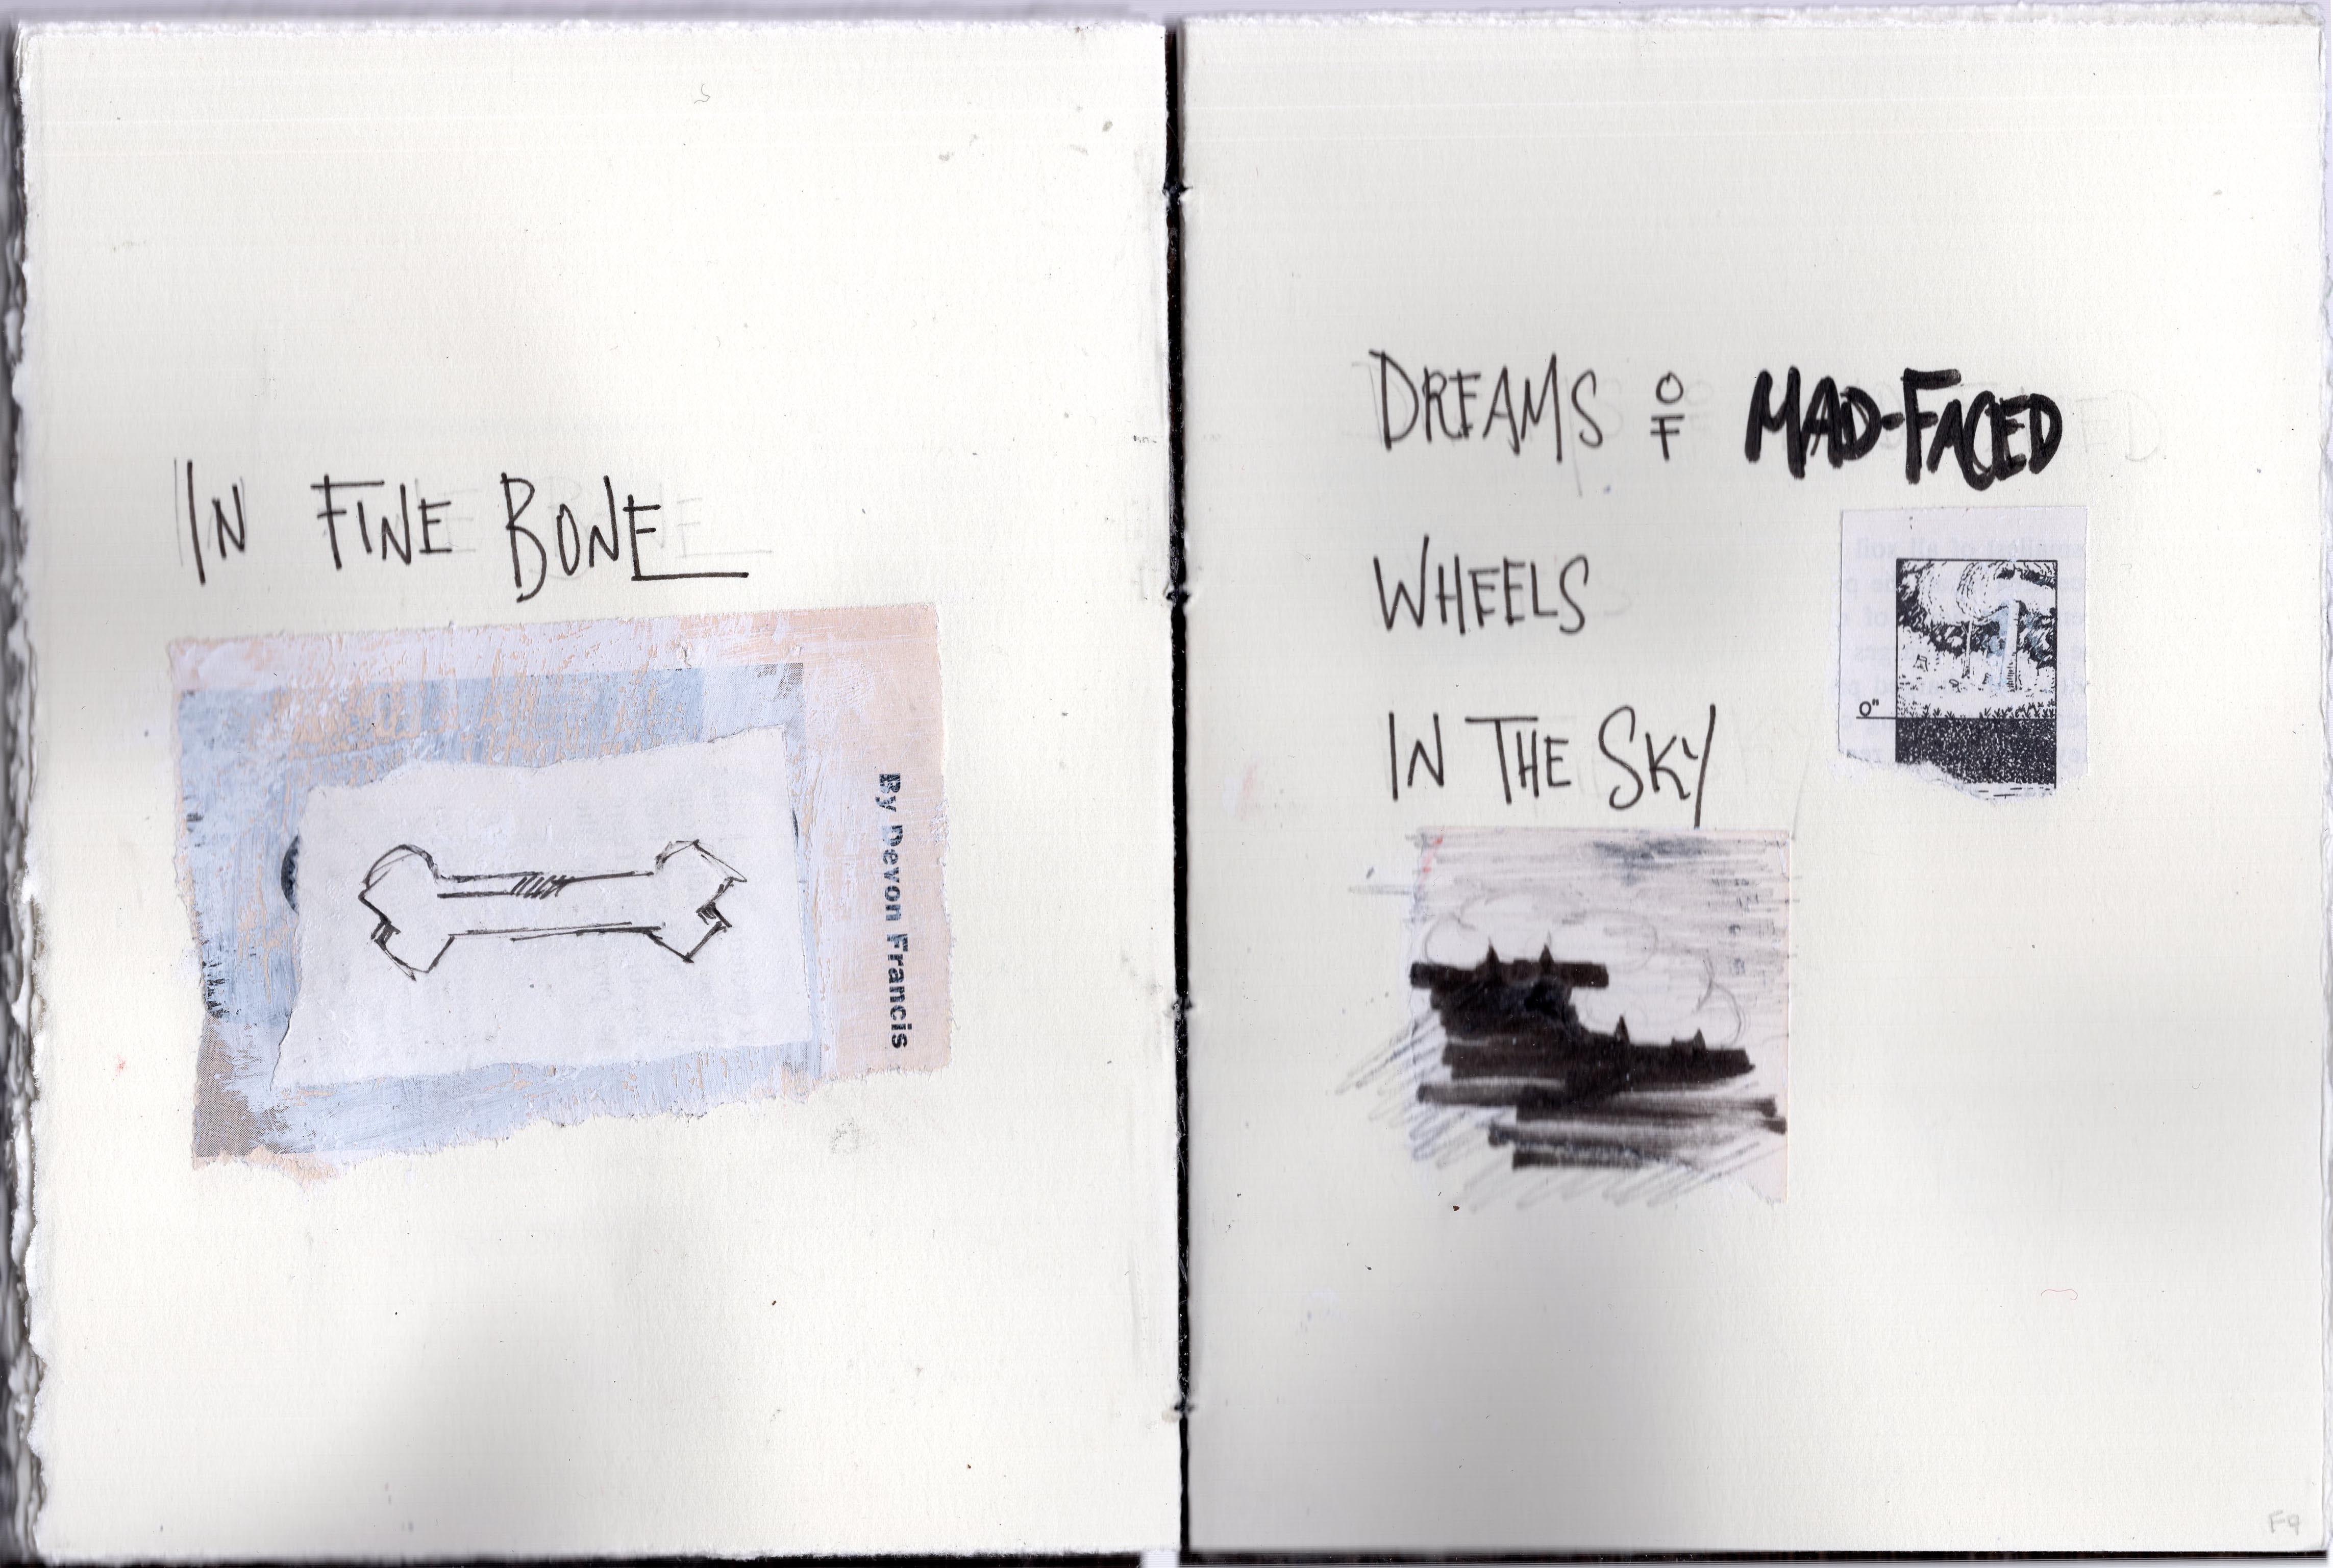 IN FINE BONE
By Devon Francis
DREAMS OF MAD-FACED
WHEELS
IN THE SKY
0"
F9